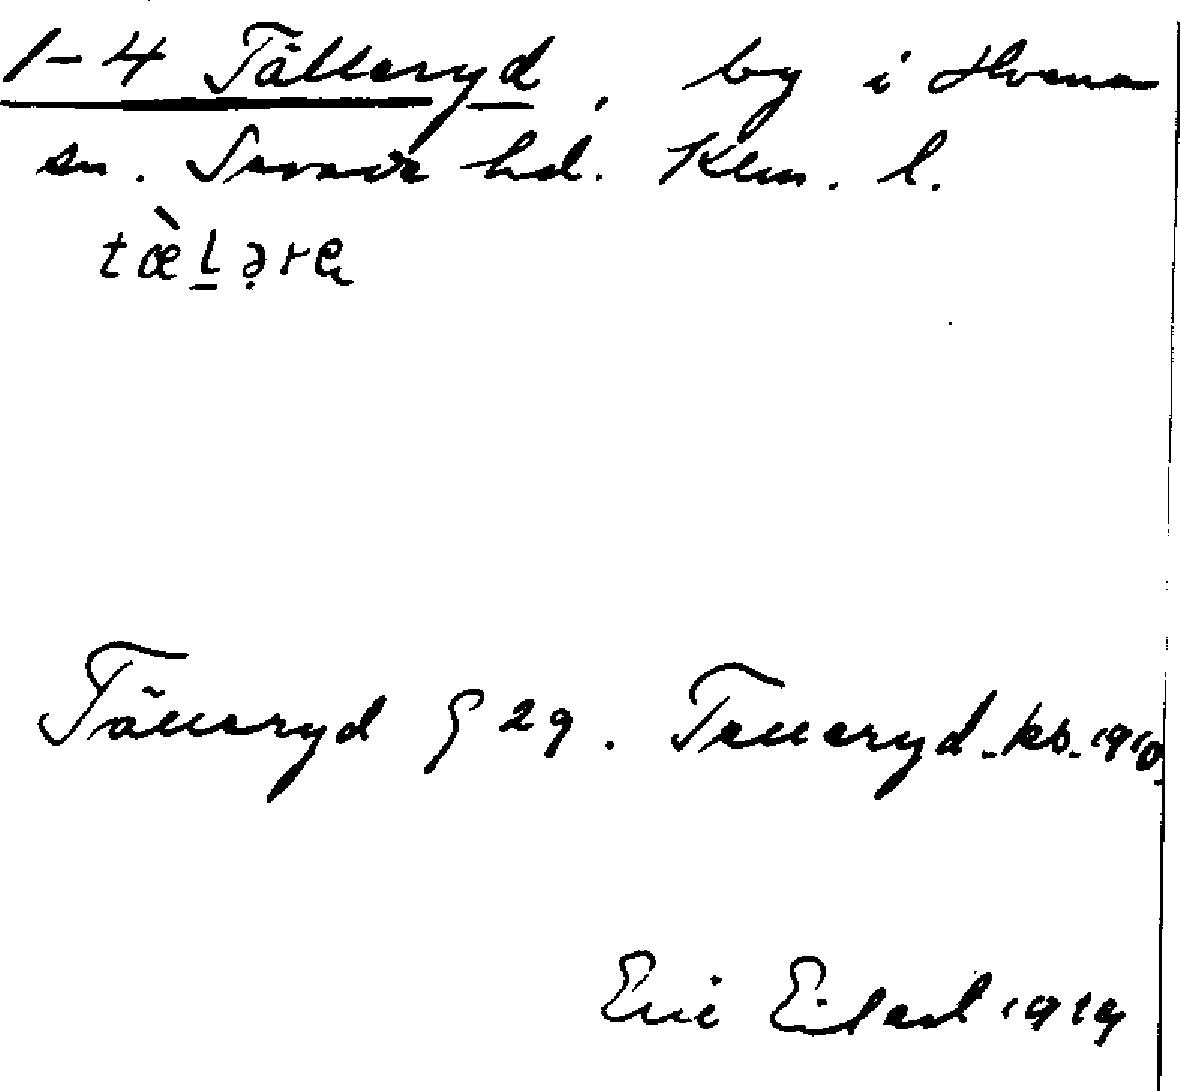 1-4 Tälleryd, by i Hvena
sn. Sevede hd. Klm. l.
tæ̀l̲ə̣re
Tälleryd § 29. Telleryd - kb. 1910.
Eric Eilard 1919